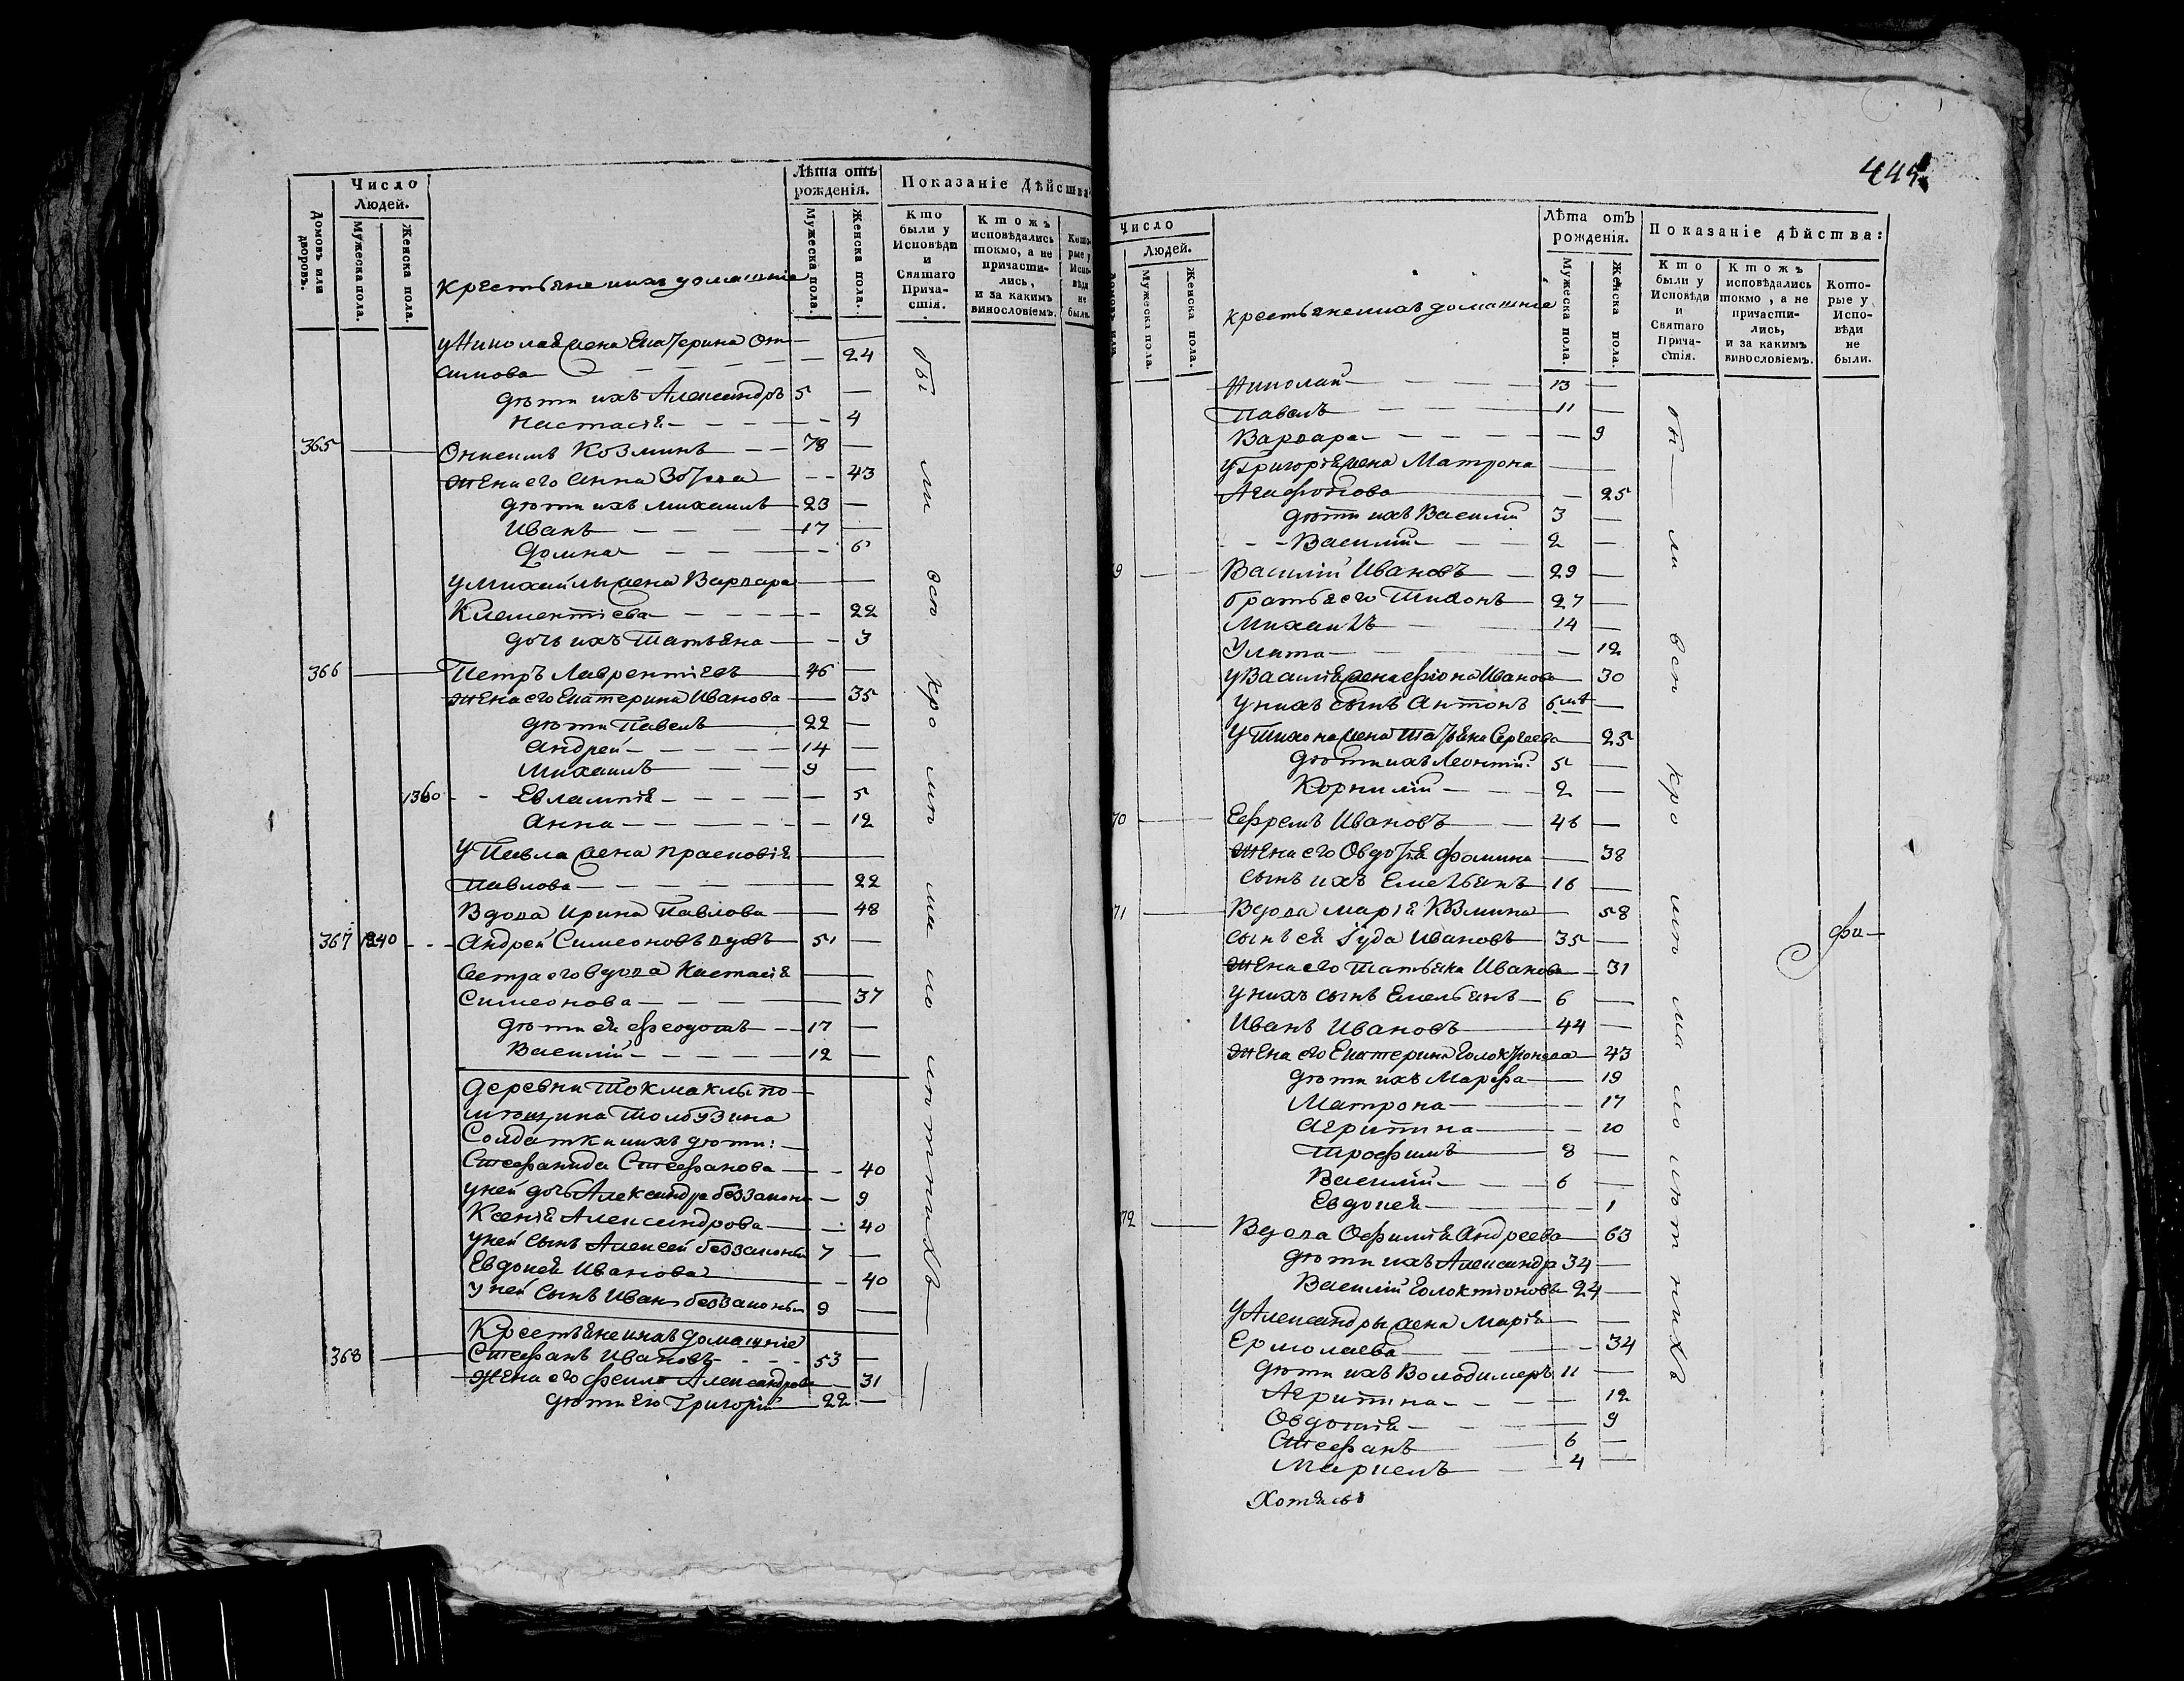 Домовъ или дворовъ.
Число
Людей.
Мужеска пола.
Женска пола.
крестьяне иихъ домашнiе
Лѣта отъ
рожденiя.
Мужеска пола.
Женска пола.
Показанiе Дѣйства
Кто
были у
Исповѣди
и
Святаго
Прича-
стiя.
Ктожъ
исповѣдались
токмо, а не
причасти-
лись,
и за какимъ
винословiемъ.
Кото-
рые у
Испо-
вѣди
не
были.
у Николая жена Екатерина
симова — 24
дѣти ихъ Александръ 5 —
Настасiя — 4
365 Онисимъ Козминъ — 78 —
жена его Анна — 43
дѣти ихъ михаилъ 23 —
Иванъ — 17 —
Домна — 6
у михайлы жена Варвара
Климентiева — 22
дочь ихъ Татьяна — 3
366 Петръ Лаврентiевъ 46 —
жена его Екатерина Иванова — 35
дѣти Павелъ 22 —
андрей — 14 —
михаилъ 9 —
1360 - - Евлампiя — 5
анна — 12
у Павла жена прасковiя
павлова — 22
Вдова Ирина Павлова — 48
367 1240 - - - Андрей Симеоновъ вдовъ 51 —
Сестра его вдова Настасiя
Симеонова — 37
дѣти ея феодотъ — 17 —
Василiй — 12 —
деревни Токмаклы по-
мѣщика Толбузина
Солдатки иихъ дѣти:
Стефанида Стефанова — 40
у ней дочь Александра беззаконн — 9
Ксенiя Александрова — 40
у ней сынъ Алексей беззаконны 7 —
Евдокея Иванова — 40
у ней сынъ Иванъ беззаконны 9 —
Крестьяне иихъ домашнiе
368 Стефанъ Ивановъ - - - 53 —
жена его Александрова — 31
дѣти его Григорiй — 22 —
бы ли всѣ кромѣ малолѣтныхъ
445
Число
Людей.
Мужеска пола.
Женска пола.
крестьяне иихъ домашнiе
Лѣта отъ
рожденiя.
Мужеска пола.
Женска пола.
Показанiе дѣйства:
Кто
были у
Исповѣди
и
Святаго
Прича-
стiя.
Ктожъ
исповѣдались
токмо, а не
причасти-
лись,
и за какимъ
винословiемъ.
Кото-
рые у
Испо-
вѣди
не
были.
Николай — 13 —
Павелъ — 11 —
Варвара — 9
у Григорiя жена Матрона
Агафонова — 25
дѣти ихъ Василiй 3 —
- - Василiй 2 —
9 — Василiй Ивановъ — 29 —
братья его Тихонъ 27 —
Михаилъ 14 —
Улита — 12
у Василiя жена фiона Иванова — 30
у нихъ сынъ Антонъ 6 —
у Тихона жена Татьяна Сергеева — 25
дѣти ихъ Леонтiй 5 —
Корнилiй — 2 —
70 — Ефремъ Ивановъ — 46 —
жена его Овдотiя фомина — 38
сынъ ихъ Емельянъ 16 —
71 — Вдова марiя Козмина — 58
сынъ ея Iуда Ивановъ 35 —
фи—
жена его Татьяна Иванова — 31
у нихъ сынъ Емельянъ 6 —
Иванъ Ивановъ — 44 —
жена его Екатерина Голоктiонова — 43
дѣти ихъ Марфа — 19
Матрона — 17
Агрипина — 10
Трофимъ 8 —
Василiй — 6 —
Евдокея — 1
72 — Вдова Офимiя Андреева — 63
дѣти ихъ Александр 34 —
Василiй Голоктiоновы 24 —
у Александры жена Марiя
Ермолаева — 34
дѣти ихъ Володимеръ 11 —
Агрипина - - - — 12
Овдотiя — 9
Стефанъ 6 —
Маркелъ — 4 —
бы — ли всѣ кромѣ малолѣтныхъ